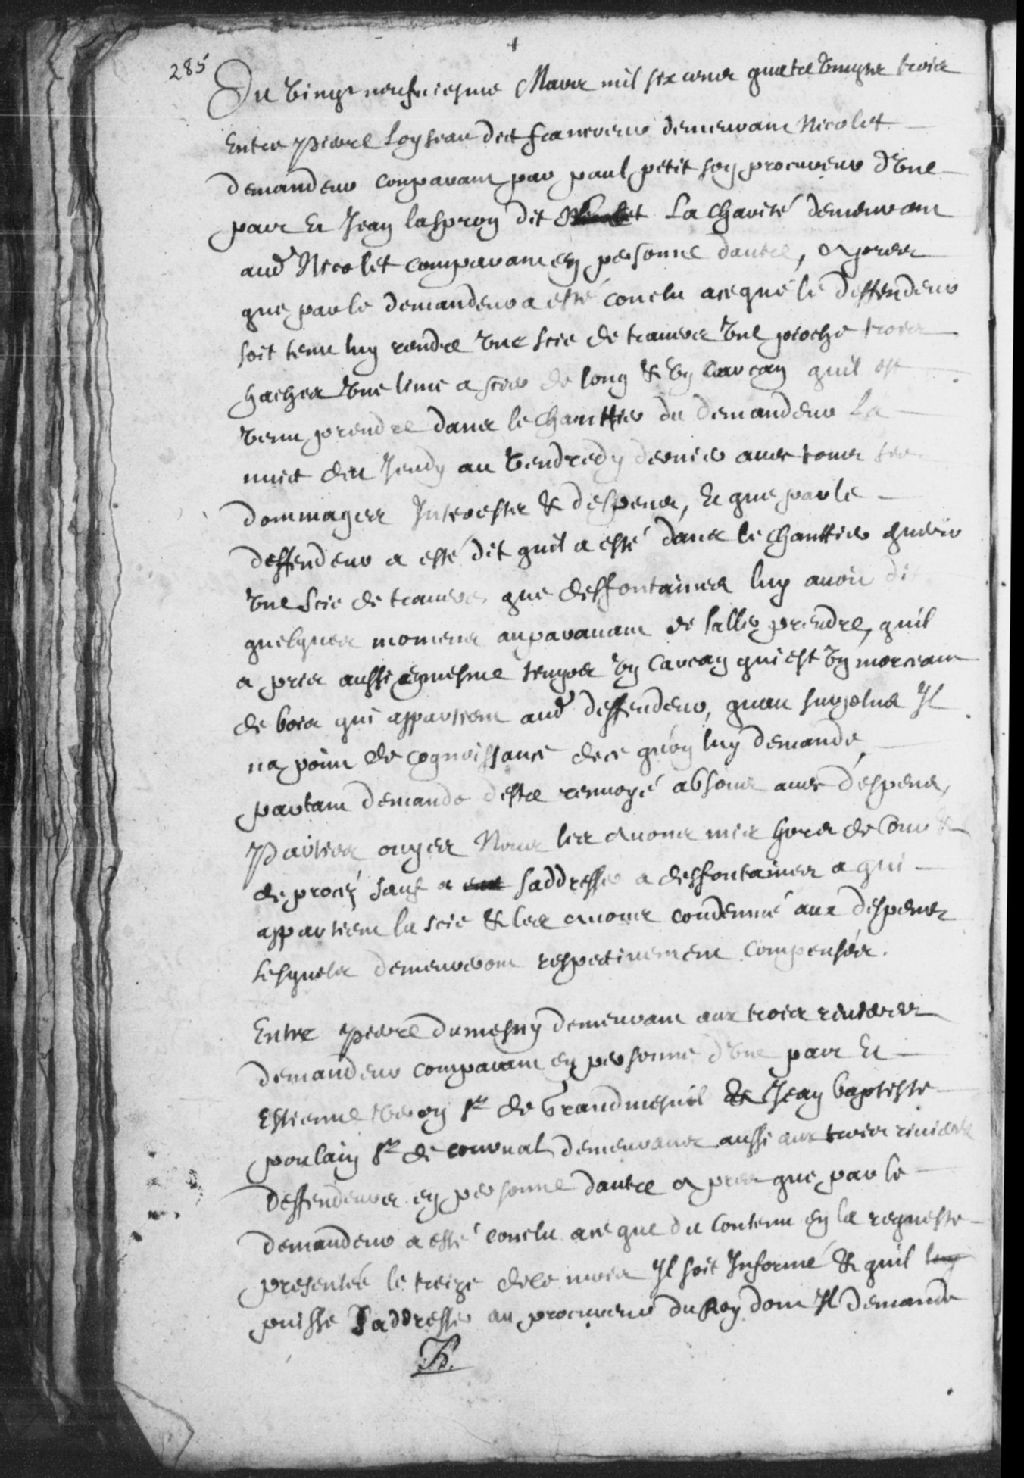 285
Du vingt neufviesme Mars mil six cens quatre vingts trois
Entre pierre Loyseau dit francoeur demeurant Nicolet
demandeur comparant par paul petit son procureur d'une
part Et Jean laspron dit La Charité demeurant
aud Nicolet comparant en personne dautre, apres
que par le demandeur a esté conclu a ce que le deffendeur
soit tenu luy rendre une scie de travers une pioche trois
haches une lime a scier de long & un carcan quil est
venu prendre dans le chanttier du demandeur la
nuict du Jeudy au vendredy dernier avec tous ses
dommages Interests & despens, Et que par le
deffendeur a esté dit quil a esté dans le chanttier querir
une scie de travers que desfontaines luy avoit dit
quelques momens auparavant de laller prendre, quil
a pris aussi en mesme temps un carcan qui est un morceau
de bois qui appartient aud deffendeur, quau surplus Il
na point de cognoissance de ce quon luy demande
partant demande destre renvoyé absous avec despens,
Parties ouyes Nous les avons mis hors de cour &
de procez sauf a saddresser a desfontaines a qui
appartient la scie & les avons condemné aux despens
Lesquels demeureront respectivement compensés.
Entre pierre dumesny demeurant aux trois rivieres
demandeur comparant en personne d'une part Et
Estienne Veron sr de Grandmesnil & Jean baptiste
poulain sr de courval demeurans aussi aux trois rivieres
deffendeurs en personne dautre apres que par le
demandeur a esté conclu a ce que du contenu en la requeste
presentée le treize de ce mois Il soit Informé & quil
puisse saddresser au procureur du Roy dont Il demande